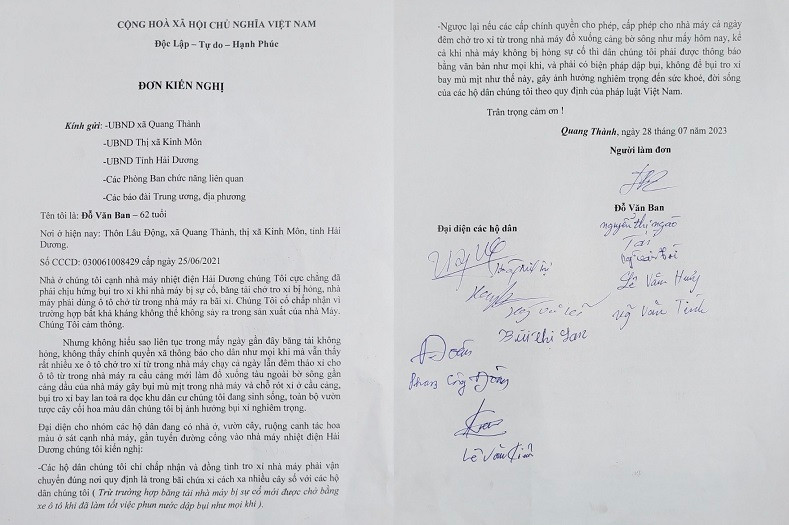 CỘNG HOÀ XÃ HỘI CHỦ NGHĨA VIỆT NAM
Độc Lập – Tự do – Hạnh Phúc
ĐƠN KIẾN NGHỊ
Kính gửi: -UBND xã Quang Thành
-UBND Thị xã Kinh Môn
-UBND Tỉnh Hải Dương
-Các Phòng Ban chức năng liên quan
-Các báo đài Trung ương, địa phương
Tên tôi là: Đỗ Văn Ban – 62 tuổi
Nơi ở hiện nay: Thôn Lâu Động, xã Quang Thành, thị xã Kinh Môn, tỉnh Hải
Dương.
Số CCCD: 030061008429 cấp ngày 25/06/2021
Nhà ở chúng tôi cạnh nhà máy nhiệt điện Hải Dương chúng Tôi cực chẳng đã
phải chịu hứng bụi tro xỉ khi nhà máy bị sự cố, băng tải chở tro xỉ bị hỏng, nhà
máy phải dùng ô tô chở từ trong nhà máy ra bãi xỉ. Chúng Tôi cố chấp nhận vì
trường hợp bất khả kháng không thể không sảy ra trong sản xuất của nhà Máy.
Chúng Tôi cảm thông.
Nhưng không hiểu sao liên tục trong mấy ngày gần đây băng tải không
hỏng, không thấy chính quyền xã thông báo cho dân như mọi khi mà vẫn thấy
rất nhiều xe ô tô chở tro xỉ từ trong nhà máy chạy cả ngày lẫn đêm tháo xỉ cho
ô tô từ trong nhà máy ra cầu cảng mới làm đổ xuống tàu ngoài bờ sông gần
cảng dầu của nhà máy gây bụi mù mịt trong nhà máy và chỗ rót xỉ ở cầu cảng,
bụi tro xỉ bay lan toả ra dọc khu dân cư chúng tôi đang sinh sống, toàn bộ vườn
tược cây cối hoa màu dân chúng tôi bị ảnh hưởng bụi xỉ nghiêm trọng.
Đại diện cho nhóm các hộ dân đang có nhà ở, vườn cây, ruộng canh tác hoa
màu ở sát cạnh nhà máy, gần tuyến đường cổng vào nhà máy nhiệt điện Hải
Dương chúng tôi kiến nghị:
-Các hộ dân chúng tôi chỉ chấp nhận và đồng tình tro xỉ nhà máy phải vận
chuyển đúng nơi quy định là trong bãi chứa xỉ cách xa nhiều cây số với các hộ
dân chúng tôi ( Trừ trường hợp băng tải nhà máy bị sự cố mới được chở bằng
xe ô tô khi đã làm tốt việc phun nước dập bụi như mọi khi ).
-Ngược lại nếu các cấp chính quyền cho phép, cấp phép cho nhà máy cả ngày
đêm chở tro xỉ từ trong nhà máy đổ xuống cảng bờ sông như mấy hôm nay, kể
cả khi nhà máy không bị hỏng sự cố thì dân chúng tôi phải được thông báo
bằng văn bản như mọi khi, và phải có biện pháp dập bụi, không để bụi tro xỉ
bay mù mịt như thế này, gây ảnh hưởng nghiêm trọng đến sức khoẻ, đời sống
của các hộ dân chúng tôi theo quy định của pháp luật Việt Nam.
Trân trọng cảm ơn !
Quang Thành, ngày 28 tháng 07 năm 2023
Người làm đơn
Đỗ Văn Ban
Đại diện các hộ dân
nguyễn thị ngào
Lê Văn Huy
Vũ Văn Tính
Bùi thị Lan
Đoán
Phạm Công Đồng
Lê Văn